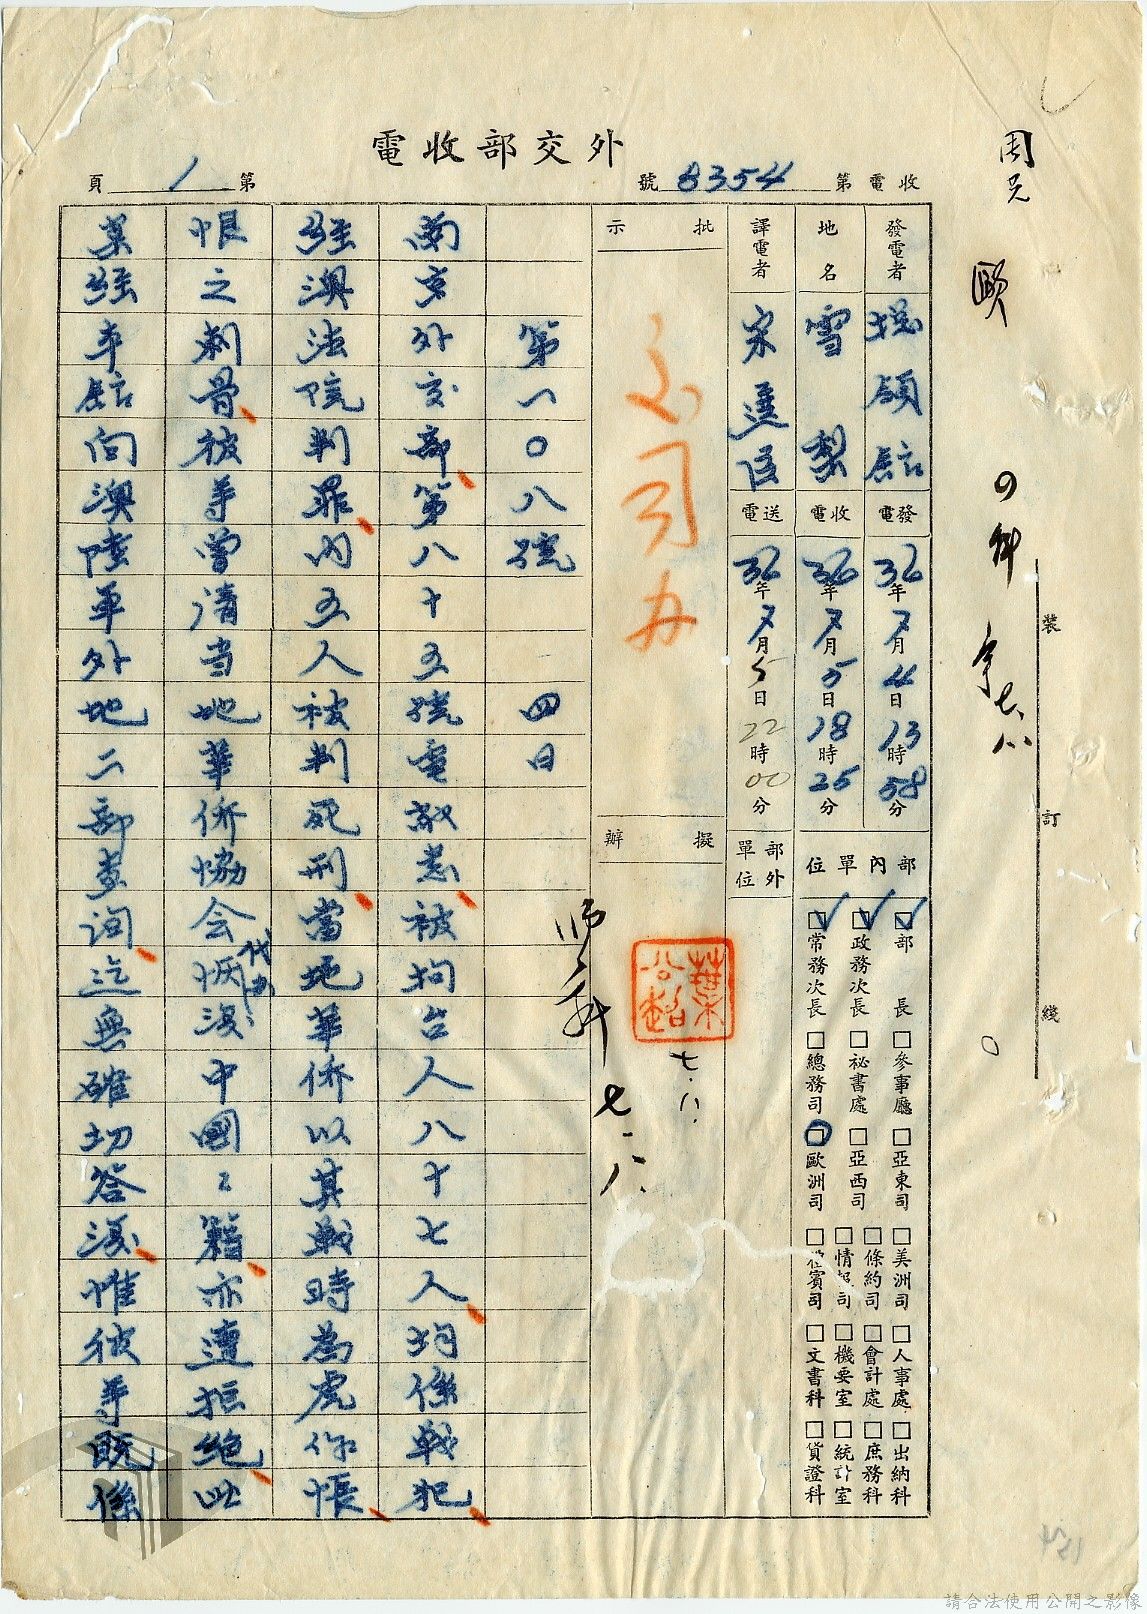 外交部收電
收電第8354號
第1頁
發電者 總領館
地名 雪梨
譯電者
發電 36年7月4日13時58分
收電 36年7月5日18時25分
送電 36年7月5日22時00分
部內單位
部外單位
☑部長
☑政務次長
☑常務次長
□參事廳
□祕書處
□總務司
□亞東司
□亞西司
□歐洲司
□美洲司
□條約司
□情報司
□禮賓司
□人事處
□會計處
□機要室
□文書科
□出納科
□庶務科
□統計室
□貨證科
批示
擬辦
葉公超
七.八.
七.八.
第一〇八號 四日
南京外交部第八十五號電敬悉被拘台人八十七人均係戰犯
經澳法院判罪內五人被判死刑當地華僑以其戰時為虎作倀
恨之刺骨彼等曾請当地華僑協会代办恢復中國國籍亦遭拒絕此
案經本館向澳陸軍外地二部查詢迄無確切答復惟彼等既係
裝訂線
周兄
歐
請合法使用公開之影像